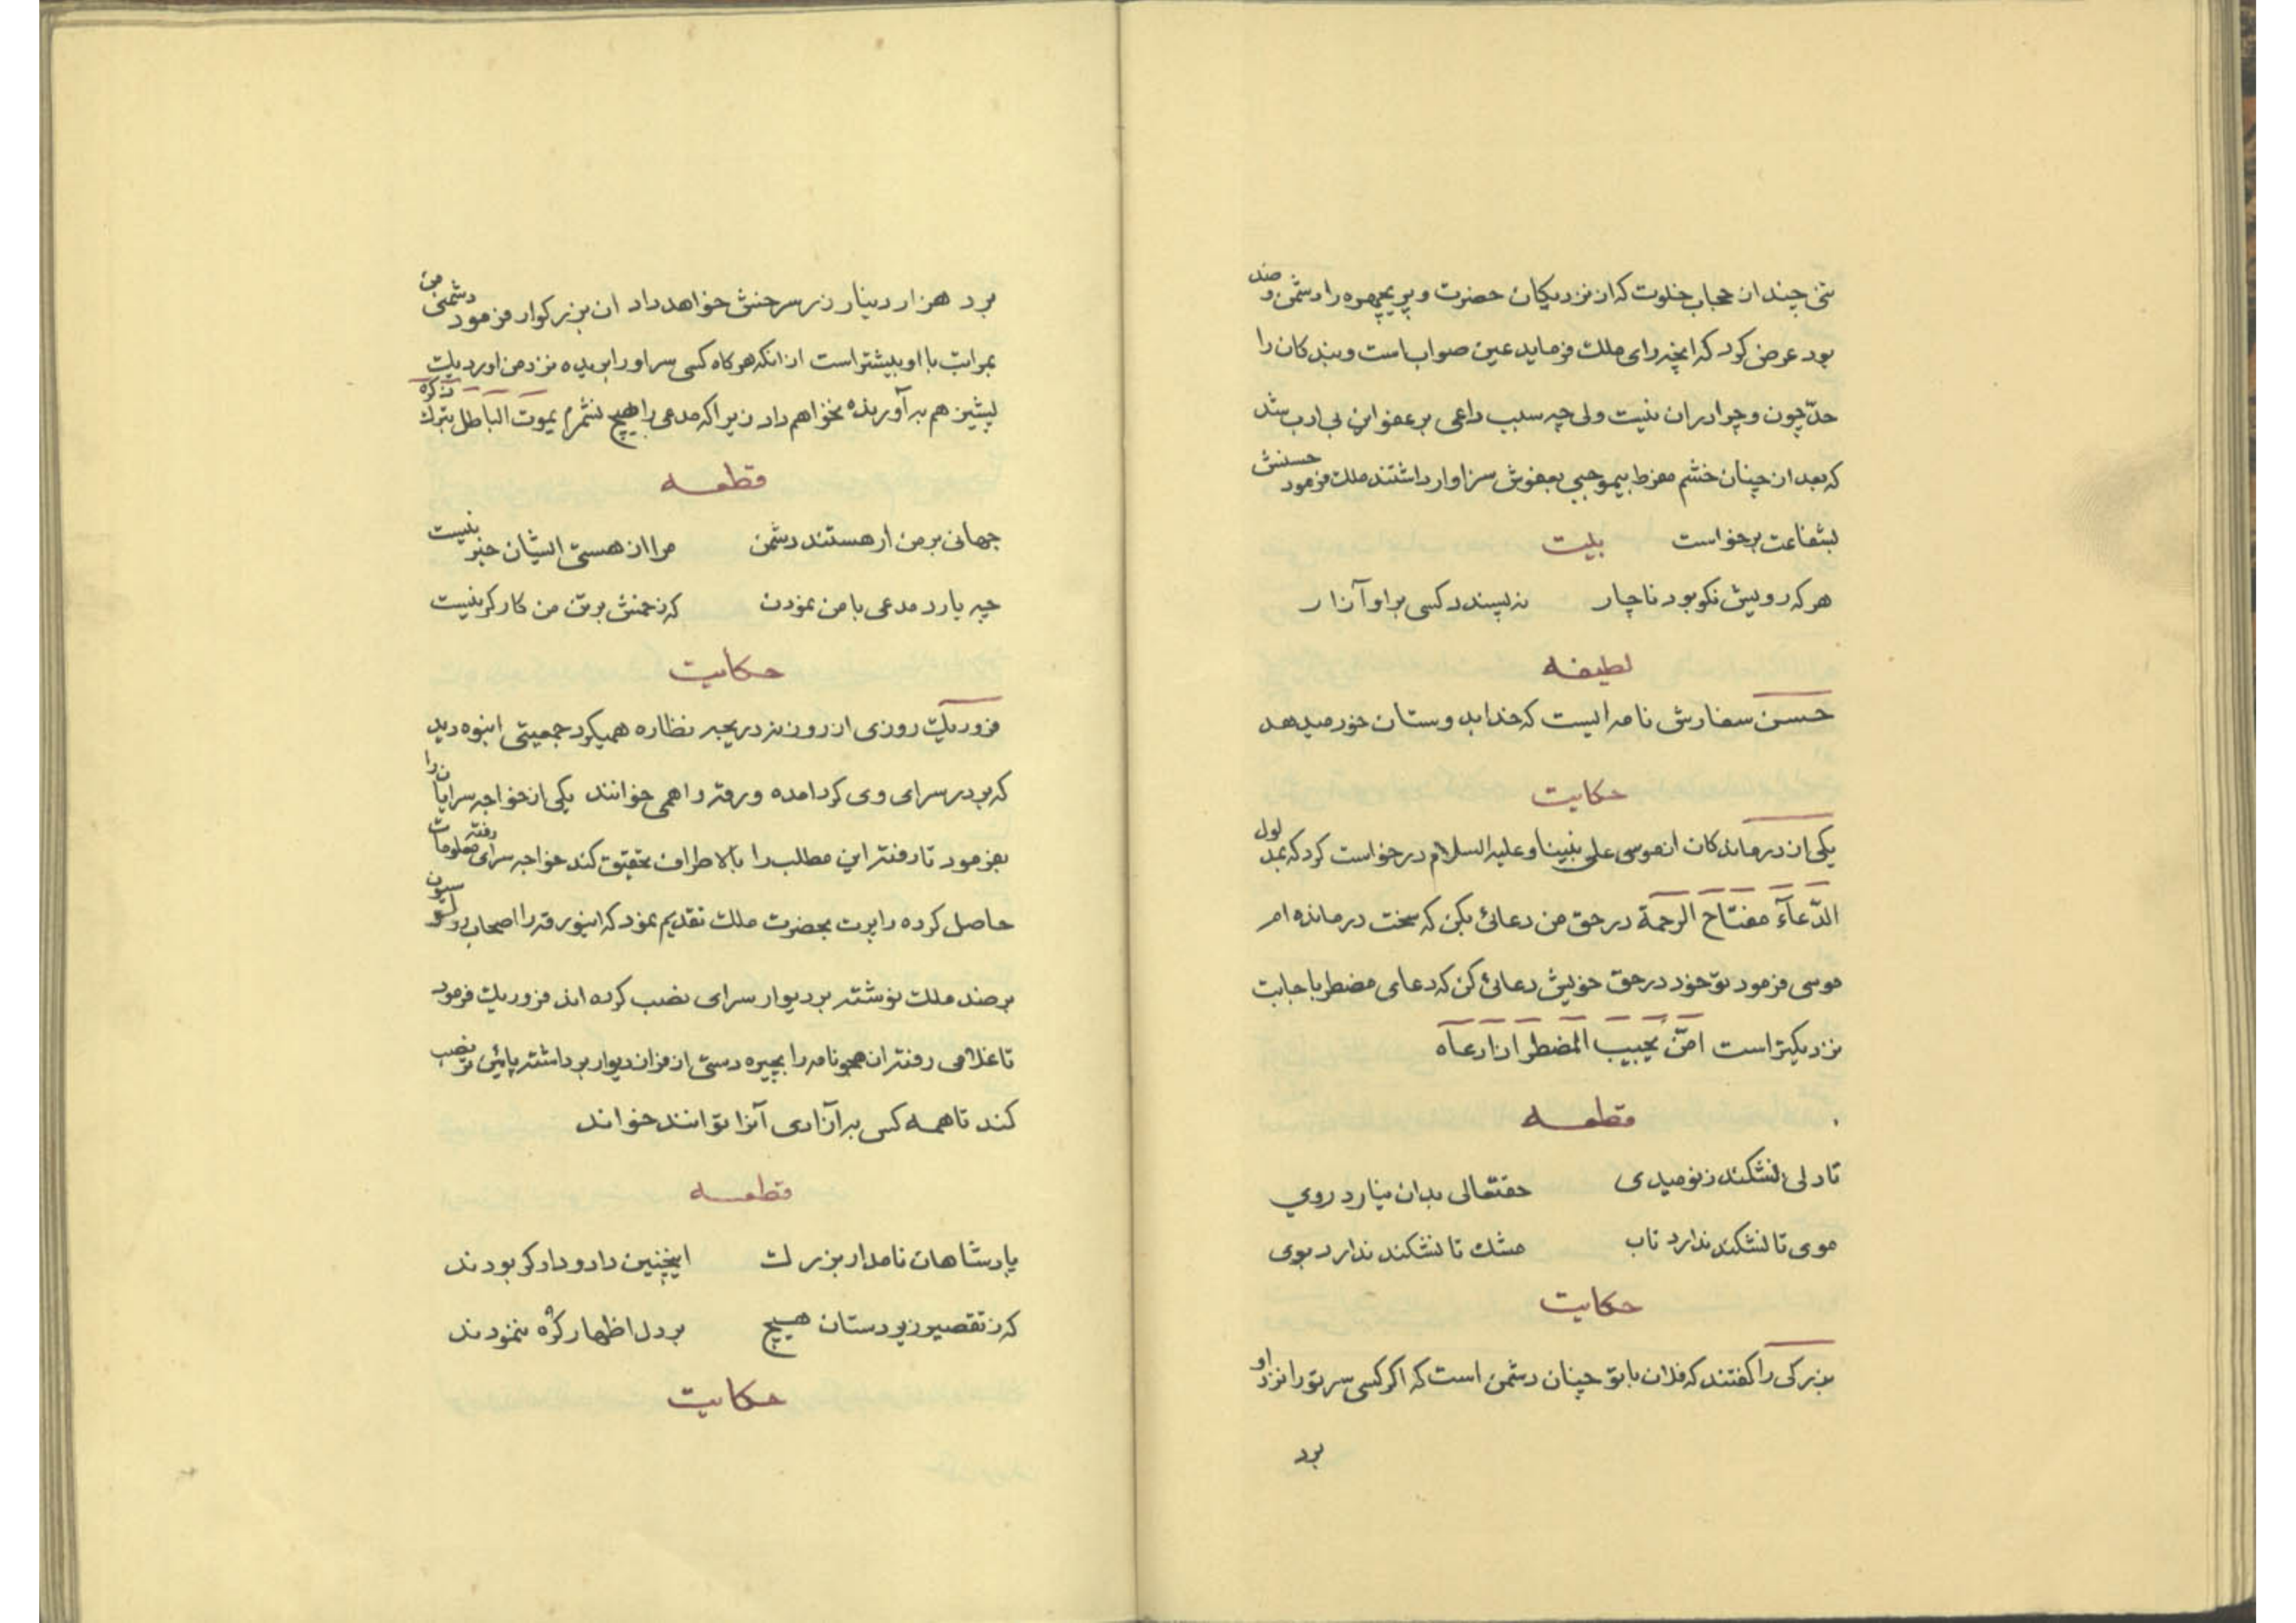 تنی چند از حجاب خلوت که از نزدیکان حضرت و پریچهره را دشمن و ضد
بود عرض کرد که انچه رای ملک فرماید عین صوابست و بندکان را
حدّ چون و چرا در ان نیست ولی چه سبب داعی بر عفو این بی ادب شد
که بعد از چنان خشم مفرط بیموجبی بعفوش سزاوار داشتند ملک فرمود حسنش
بشفاعت برخواست بیت
هر که رویش نکو بود ناچار نه پسندد کسی براو آزار
لطیفه
حسن سفارش نامه ایست که خدا بدوستان خود میدهد
حکایت
یکی از درماندکان از موسی علی نبینا و علیه السلام درخواست کرد که بمدلول
الدّعآء مفتاح الرحمة در حق من دعائ بکن که سخت درمانده ام
موسی فرمود تو خود در حق خویش دعائ کن که دعای مضطر باجابت
نزدیکتر است امّن یُجیب المضطر اذا دعاه
قطعه
تا دلی نشکند ز نومیدی حقتعالی بدان نیارد روی
موی تا نشکند ندارد تاب مشک تا نشکند ندارد بوی
حکایت
بزرکی را کفتند که فلان با تو چنان دشمن است که اکر کسی سر تو را نزد او
برد
برد هزار دینار زر سرخش خواهد داد ان بزرکوار فرمود دشمنی من
بمراتب با او بیشتر است از انکه هر کاه کسی سر او را بریده نزد من اورد یک
پشیز هم به آورنده نخواهم داد زیرا که مدعی را هیچ نشمرم یموت الباطل بترک ذکره
قطعه
جهانی بر من ار هستند دشمن مرا از هستی ایشان خبر نیست
چه یارد مدعی با من نمودن که زخمش بر تن من کارکر نیست
حکایت
فردریک روزی از روزنه دریچه نظاره همیکرد جمعیتی انبوه دید
که بر در سرای وی کرد امده ورقه را همی خوانند یکی از خواجه سرایان را
بفرمود تا رفته این مطلب را بالاطراف تحقیق کند خواجه سرای رفته معلومات
حاصل کرده را پرت بحضرت ملک تقدیم نمود که اینورقه را اصحاب
بر ضد ملک نوشته بر دیوار سرای نصب کرده اند فردریک فرمود
تا غلامی رفته ان هجو نامه را بچیره دستی از فراز دیوار برداشته پائین تر نصب
کند تا همه کس به آزادی آنرا توانند خواند
قطعه
پادشاهان نامدار بزرک اینچنین داد و دادکر بودند
که ز تقصیر زیردستان هیچ بر دل اظهار کره ننمودند
حکایت